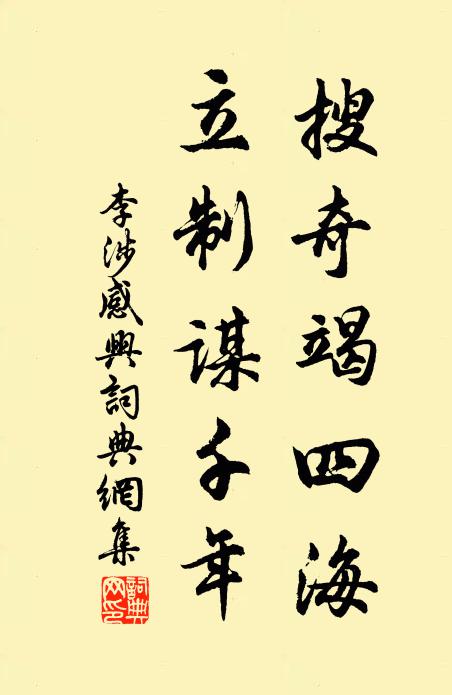 搜奇竭四海
立制谋千年
李涉感興詞典網集
詞典網印